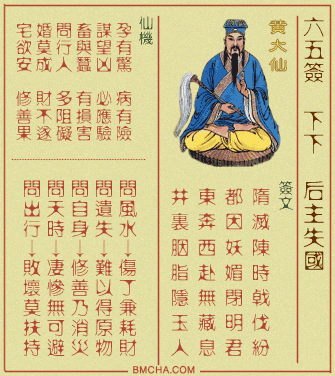 六五簽 下下 后主失國
黄大仙
簽文
隋滅陳時戟伐紛
都因妖媚閉明君
東奔西赴無藏息
井裏胭脂隱玉人
仙機
孕有驚 病有險
謀望凶 必應驗
畜與蠶 有損害
問行人 多阻礙
婚莫成 財不遂
宅欲安 修善果
問風水→傷丁兼耗財
問遺失→難以得原物
問自身→修善乃消災
問天時→凄慘無可避
問出行→敗壞莫扶持
BMCHA.COM